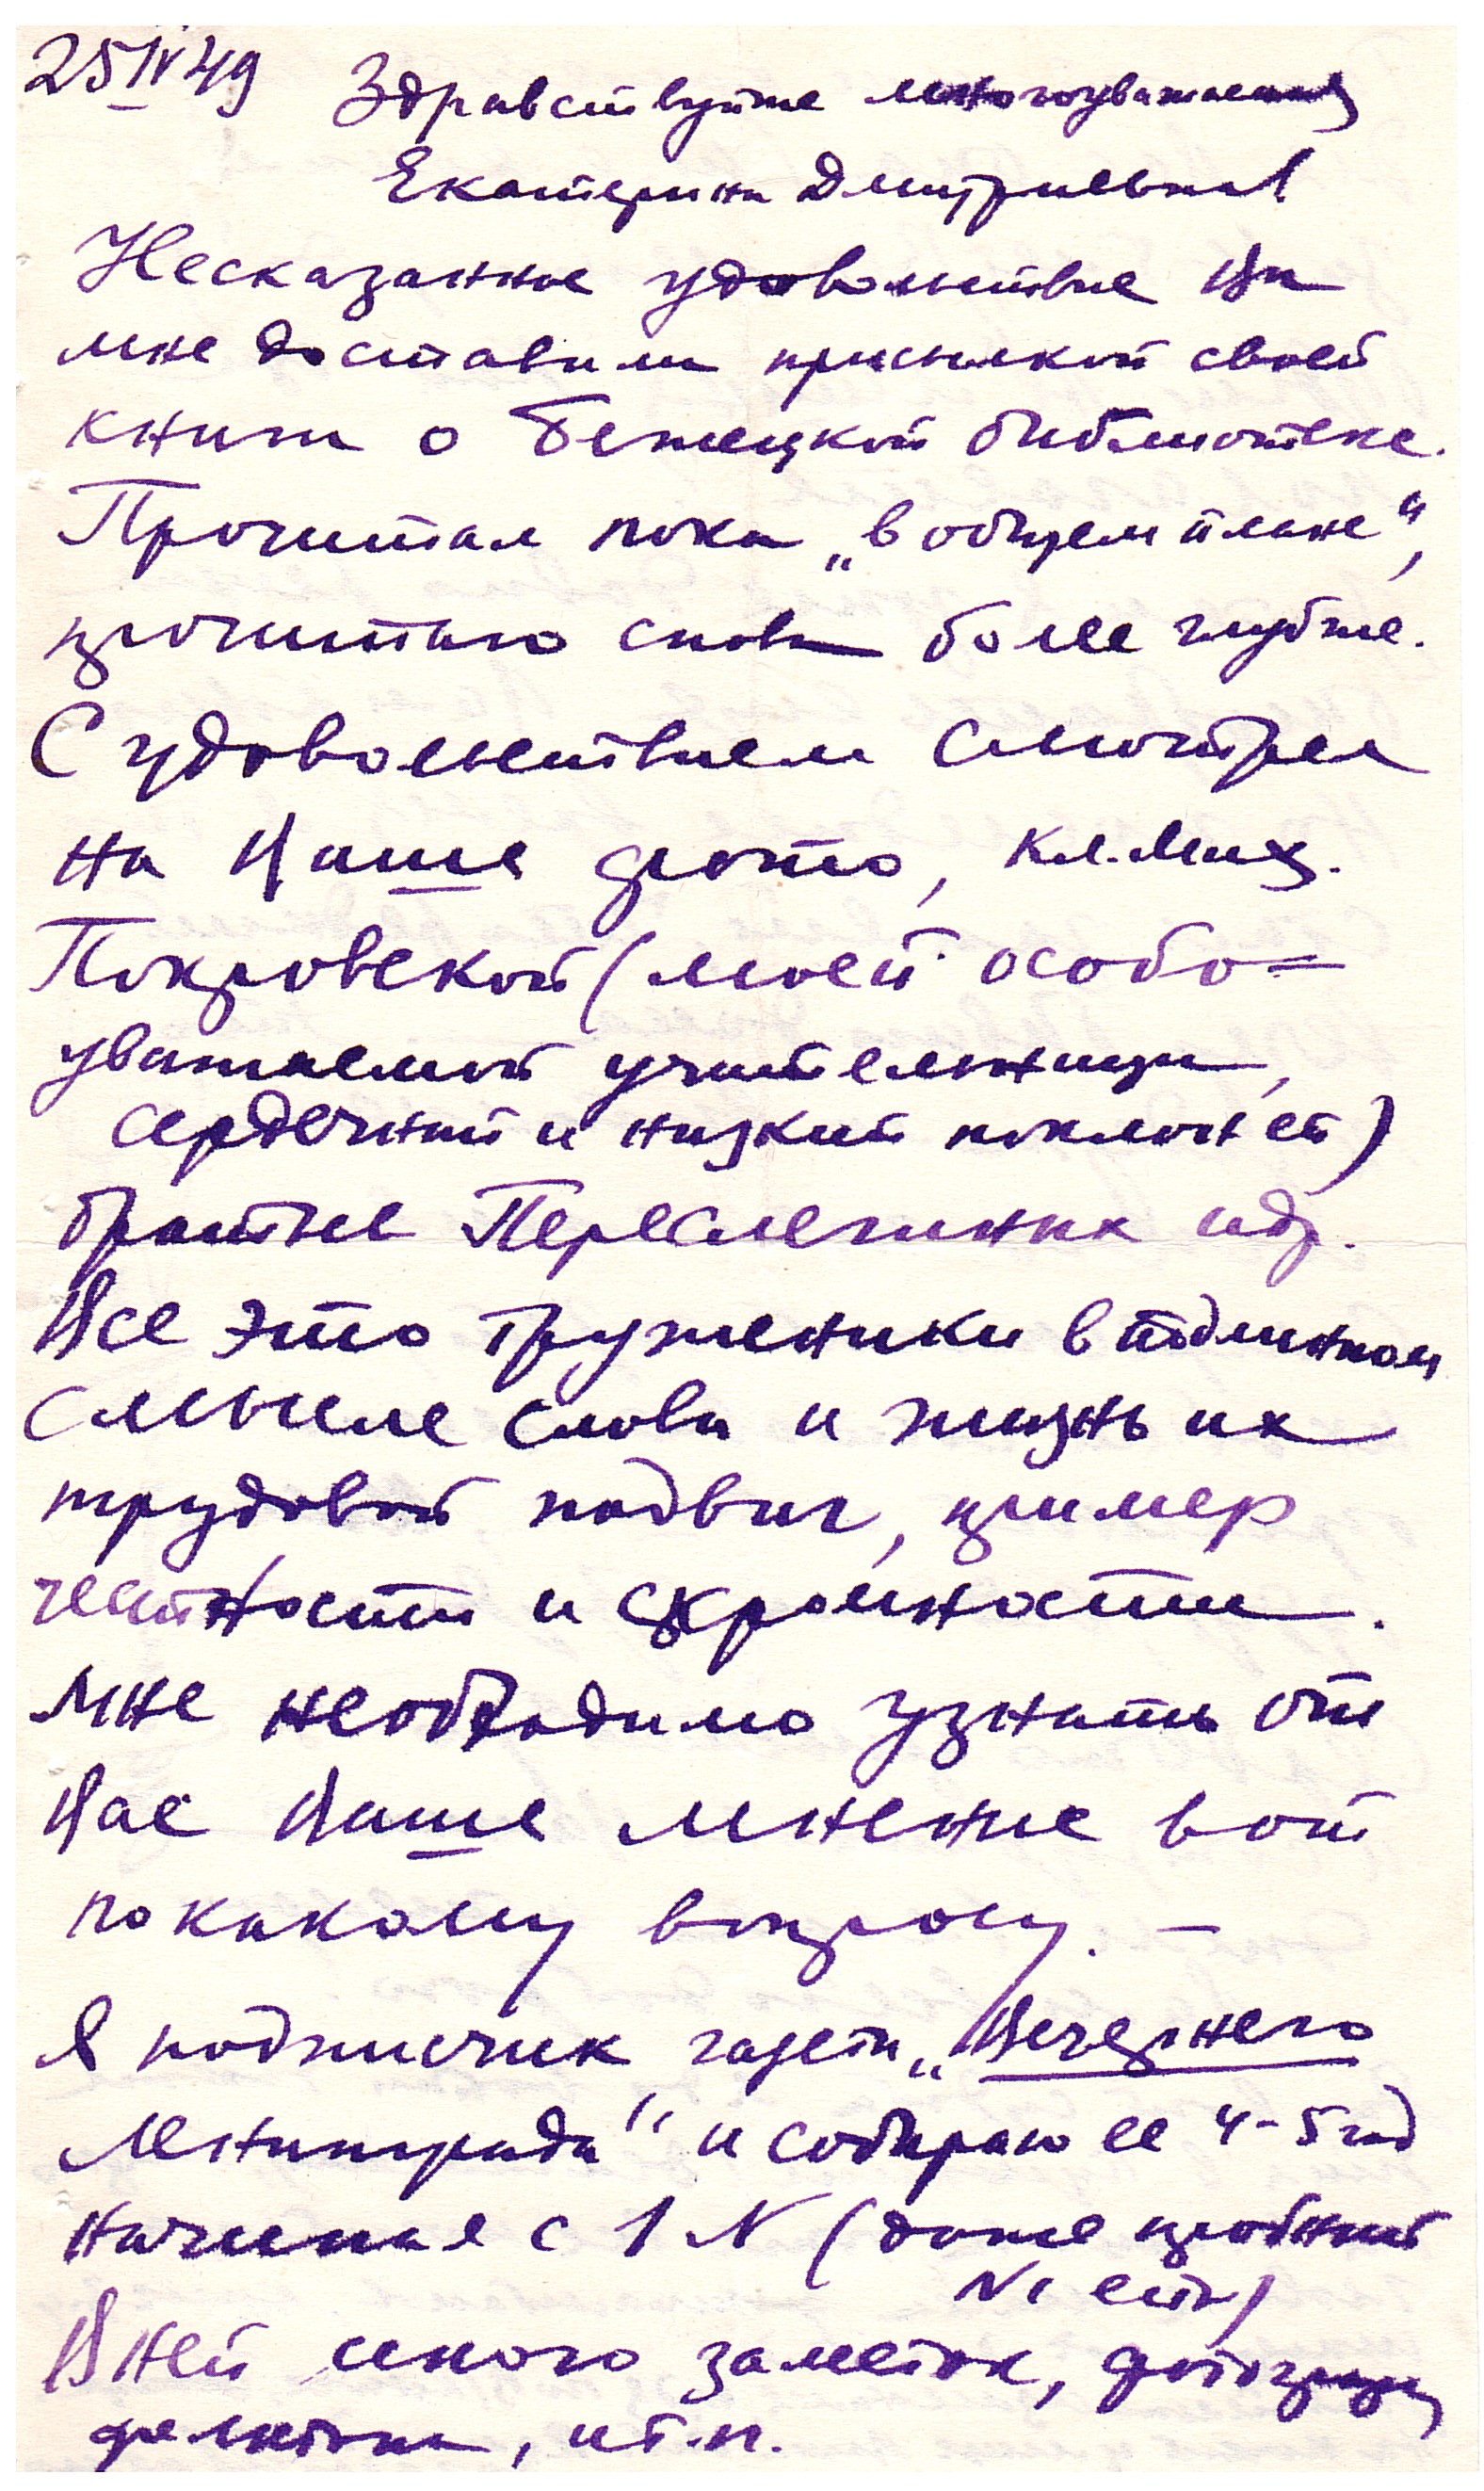 25 IV 49 Здравствуйте многоуважаемая
Екатерина Дмитриевна
Несказанное удовольствие Вы
мне доставили присылкой своей
книги о Бежецкой библиотеке.
Прочитал пока „в общем плане“,
прочитаю снова более глубже.
С удовольствием смотрел
на Ваше фото, Кл. Мих.
Покровской (моей особо=
уважаемой учительницы,
сердечный и низкий поклон ей)
братьев Переслегиных и др.
Все это труженики в подлинном
смысле слова и жизнь их
трудовой подвиг, пример
честности и скромности.
Мне необходимо узнать от
Вас Ваше мнение вот
по какому вопросу. –
Я подписчик газеты „Вечернего
Ленинграда“ и собираю ее 4-5 год
начиная с 1 N (даже пробный
N1 есть)
В ней много заметок,
фельетоны, и т.п.